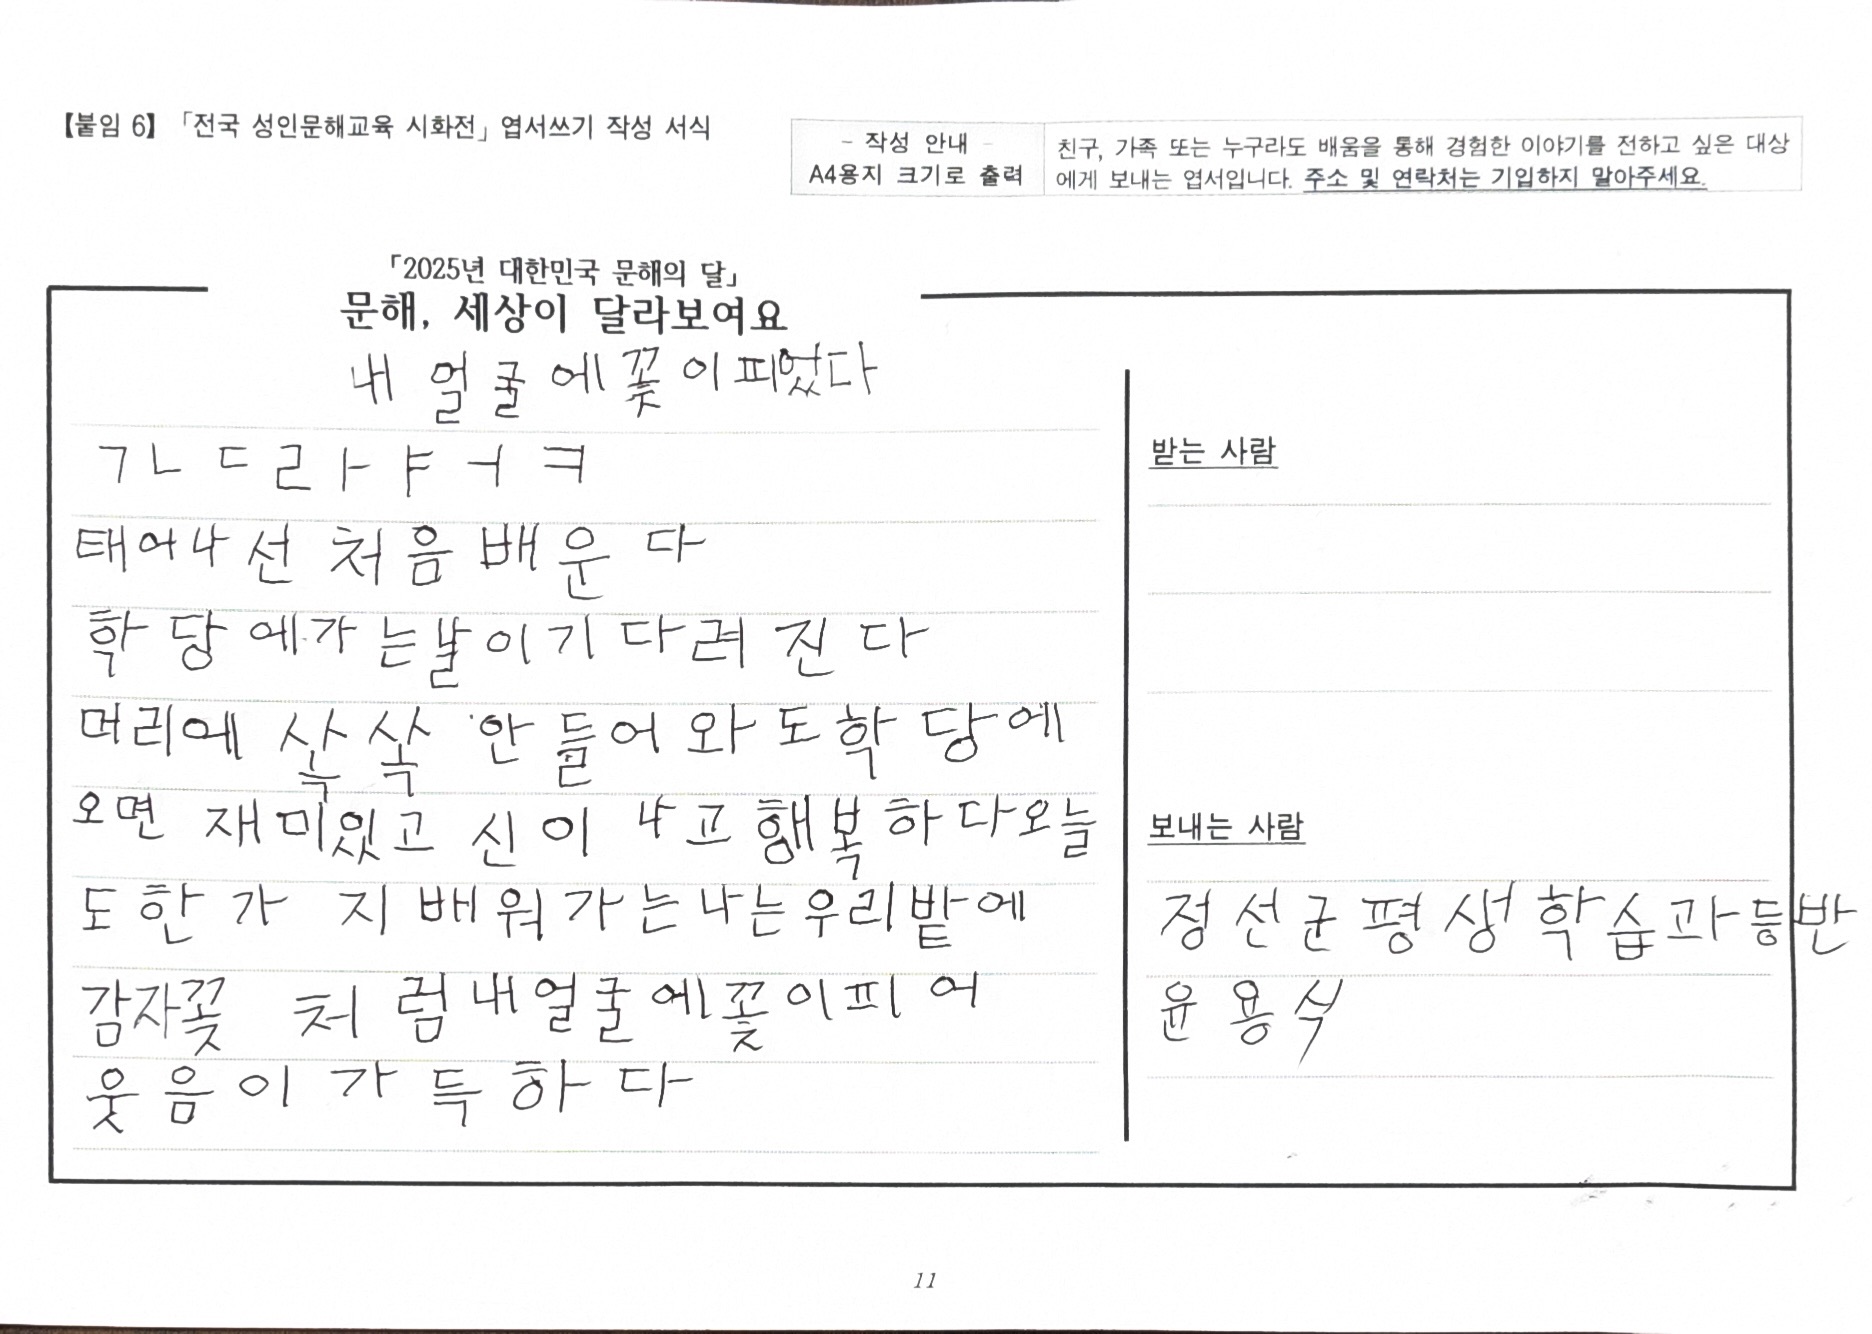 【붙임 6】 「전국 성인문해교육 시화전」 엽서쓰기 작성 서식
- 작성 안내 -
A4용지 크기로 출력
친구, 가족 또는 누구라도 배움을 통해 경험한 이야기를 전하고 싶은 대상
에게 보내는 엽서입니다. 주소 및 연락처는 기입하지 말아주세요.
「2025년 대한민국 문해의 달」
문해, 세상이 달라보여요
내 얼굴에 꽃이 피었다
ㄱㄴㄷㄹㅏㅑㅓㅋ
태어나 선 처음 배운다
학당에 가는 날이 기다려진다
머리에 쏙쏙 안 들어와도 학당에
오면 재미있고 신이 나고 행복하다 오늘
도 한 가지 배워가는 나는 우리밭에
감자꽃 처럼 내 얼굴에 꽃이 피어
웃음이 가득하다
받는 사람
보내는 사람
정선군평생학습과등반
윤용식
11